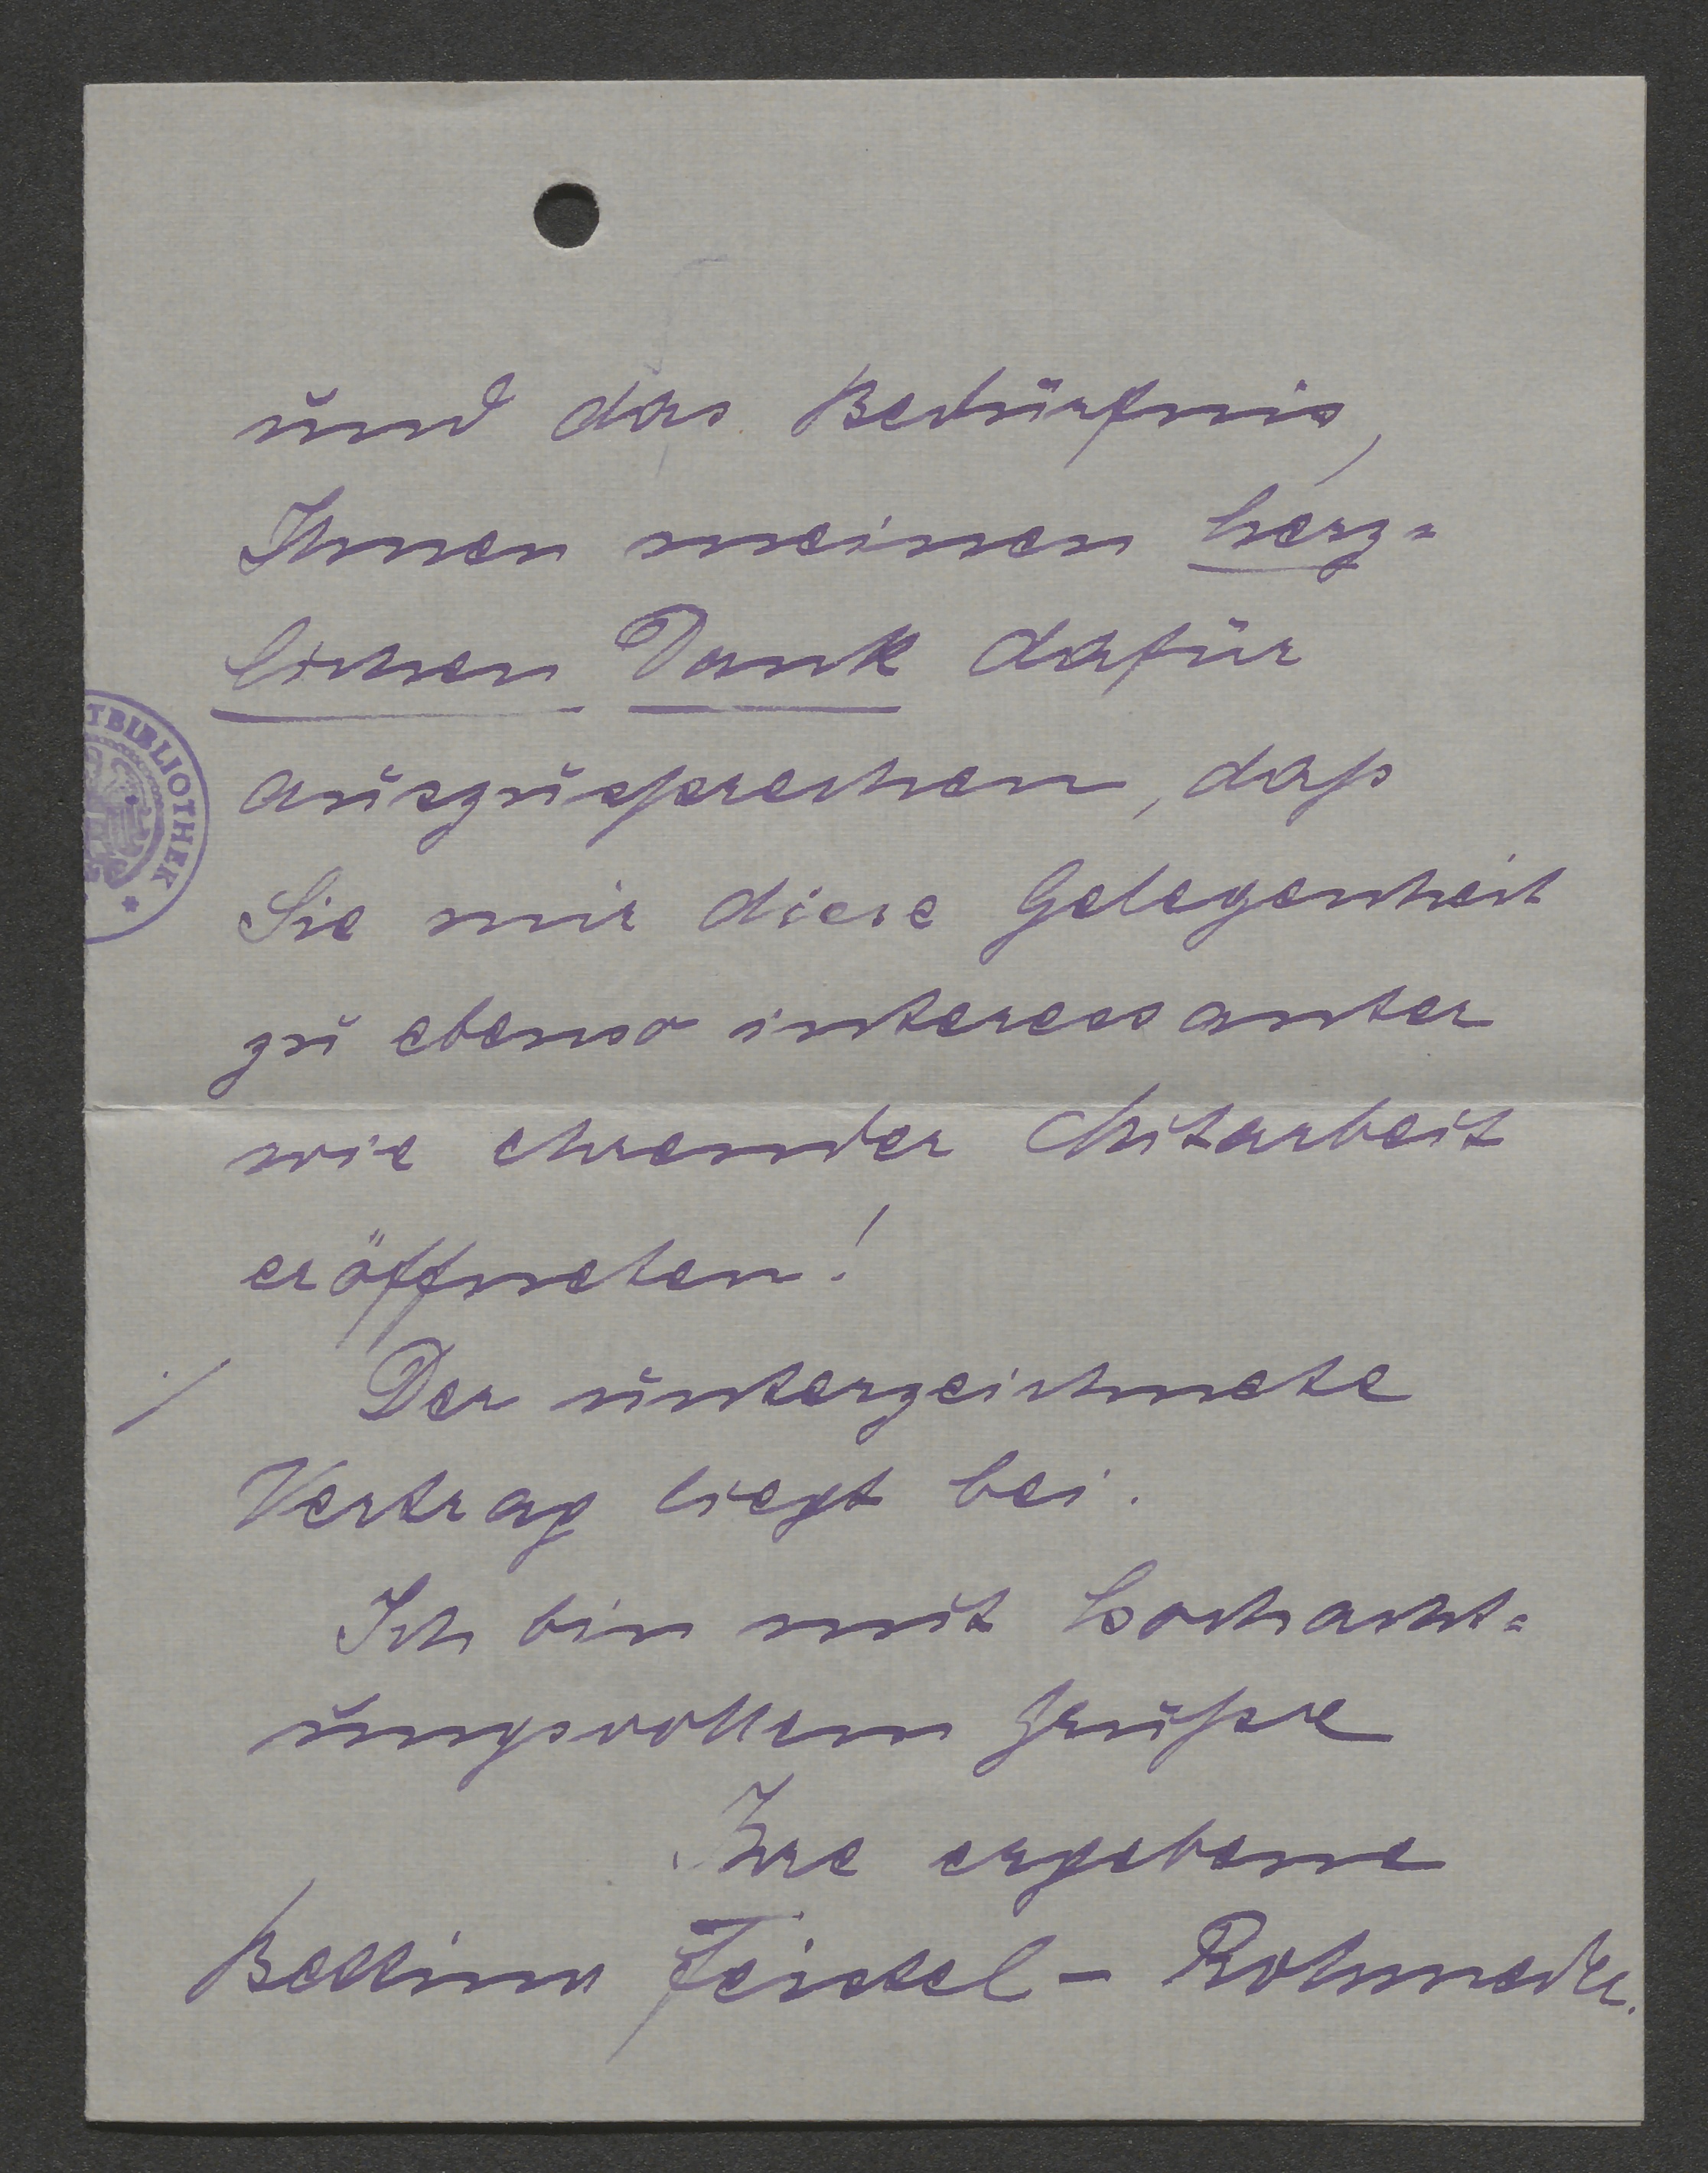 und das Bedürfnis,
Ihnen meinen herz=
lichen Dank dafür
auszusprechen, daß
Sie mir diese Gelegenheit
zu ebenso interessanter
wie ehrender Mitarbeit
eröffneten!
./. Der unterzeichnete
Vertrag liegt bei.
Ich bin mit hochacht=
ungsvollem Gruße
Ihre ergebene
Bettina Feistel-Rohmeder.
TBIBLIOTHEK *